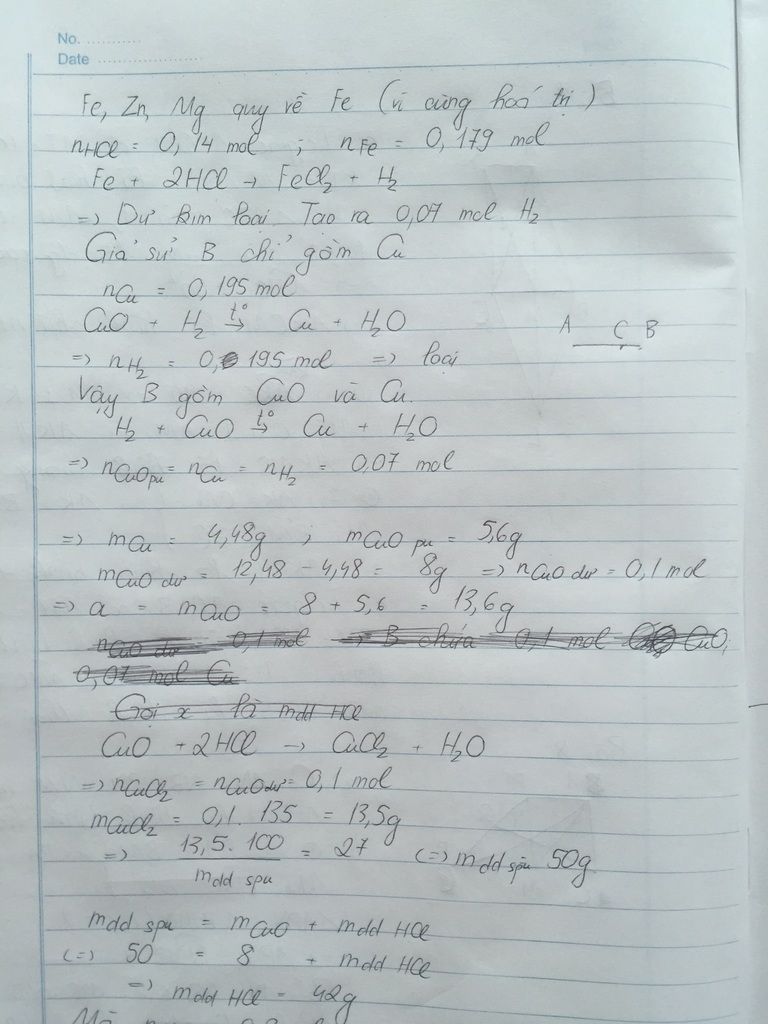 No. ............
Date ......................
Fe, Zn, Mg quy về Fe (vì cùng hoá trị)
nHCl = 0,14 mol ; nFe = 0,179 mol
Fe + 2HCl → FeCl₂ + H₂
=> Dư kim loại. Tạo ra 0,07 mol H₂
Giả sử B chỉ gồm Cu
nCu = 0,195 mol
CuO + H₂ t°→ Cu + H₂O
A C B
=> nH₂ = 0,195 mol => loại
Vậy B gồm CuO và Cu.
H₂ + CuO t°→ Cu + H₂O
=> nCuO pu = nCu = nH₂ = 0,07 mol
=> mCu = 4,48g ; mCuO pu = 5,6g
mCuO dư = 12,48 - 4,48 = 8g => nCuO dư = 0,1 mol
=> a = mCuO = 8 + 5,6 = 13,6g
nCuO dư 0,1 mol => B chứa 0,1 mol CuO,
0,07 mol Cu
Gọi x là mdd HCl
CuO + 2HCl → CuCl₂ + H₂O
=> nCuCl₂ = nCuO dư = 0,1 mol
mCuCl₂ = 0,1. 135 = 13,5g
=> 13,5. 100 / mdd spu = 27 (=> mdd spu 50g
mdd spu = mCuO + mdd HCl
(=> 50 = 8 + mdd HCl
=> mdd HCl = 42g